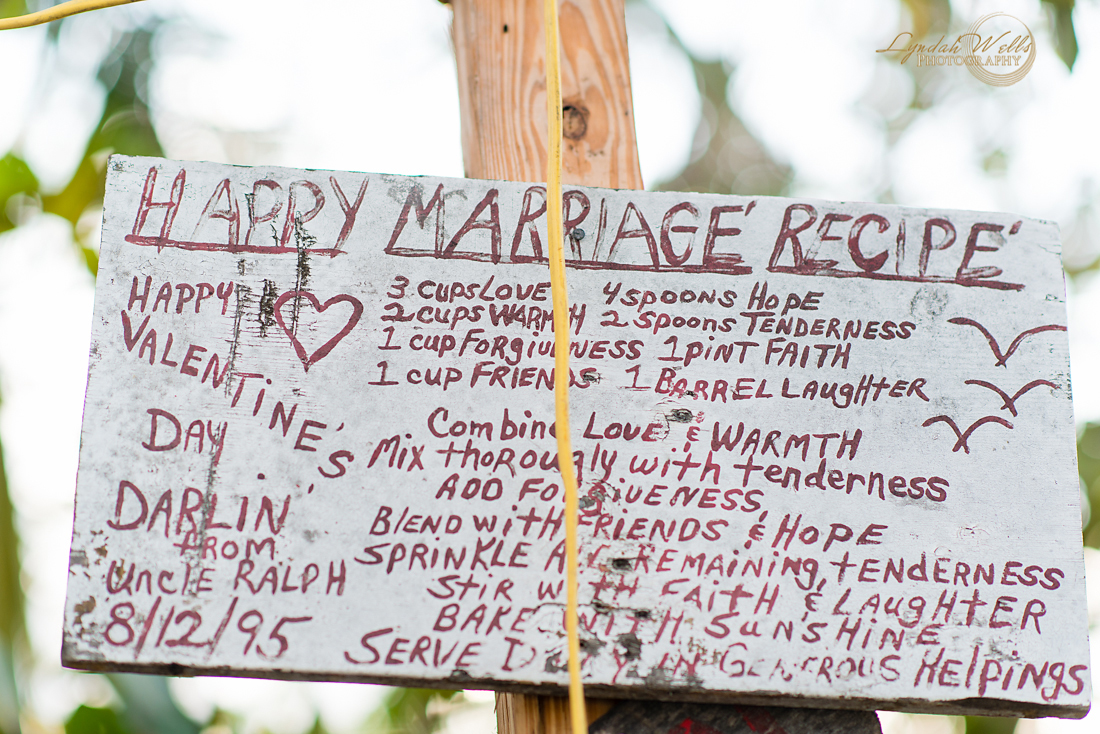 Lyndah Wells
PHOTOGRAPHY
HAPPY MARRIAGE RECIPE
HAPPY
VALENTINE'S
DAY
DARLIN'
FROM
Uncle RALPH
8/12/95
3 cups LOVE 4 spoons HOPE
2 cups WARMTH 2 spoons TENDERNESS
1 cup FORGIVENESS 1 pint FAITH
1 cup FRIENDS 1 BARREL LAUGHTER
Combine LOVE & WARMTH
Mix thoroughly with tenderness
ADD FORGIVENESS,
BLEND WITH FRIENDS & HOPE
SPRINKLE ALL REMAINING, tENDERNESS
STIR WITH FAITH & LAUGHTER
BAKE WITH SUNSHINE
SERVE DAILY IN GENEROUS HELPINGS